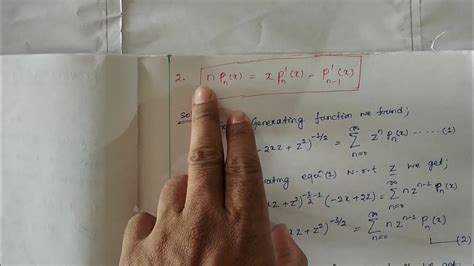 2. n Pₙ(x) = x P'ₙ(x) - P'ₙ₋₁(x)
Generating function we found;
-2xz + z²)^(-1/2) = Σ_(n=0)^∞ zⁿ Pₙ(x) ...... (1)
ating equⁿ (1) w.r.t z we get;
xz + z²)^(-1/2 - 1) (-2x + 2z) = Σ_(n=0)^∞ n zⁿ⁻¹ Pₙ(x)
xz + z²)^(-3/2) = Σ_(n=0)^∞ n zⁿ⁻¹ Pₙ(x)
(2)
we get: